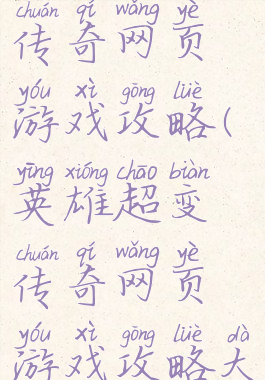 chuán qí wǎng yè
传奇网页
yóu xì gōng lüè
游戏攻略(
yīng xióng chāo biàn
英雄超变
chuán qí wǎng yè
传奇网页
yóu xì gōng lüè dà
游戏攻略大